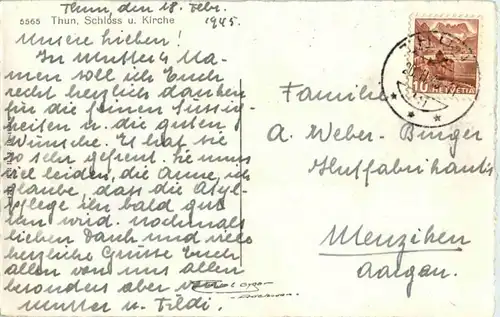 Thun, den 18. Febr.
1945.
5565 Thun, Schloss u. Kirche
Unsere lieben!
In Mutters Na-
men soll ich Euch
recht herzlich danken
für die feinen Süssig-
keiten u. die guten
Wünsche. Es hat sie
so sehr gefreut. Sie muss
viel leiden, die Arme, ich
glaube, dass die Asyl-
pflege ihr bald gut
tun wird. Nochmals
lieben Dank und viele
herzliche Grüsse Euch
allen von uns allen
besonders aber von
Mutter u. Fildi.
10 HELVETIA
Familie
A. Weber-Burger
Hutfabrikants
Menziken
Aargau.